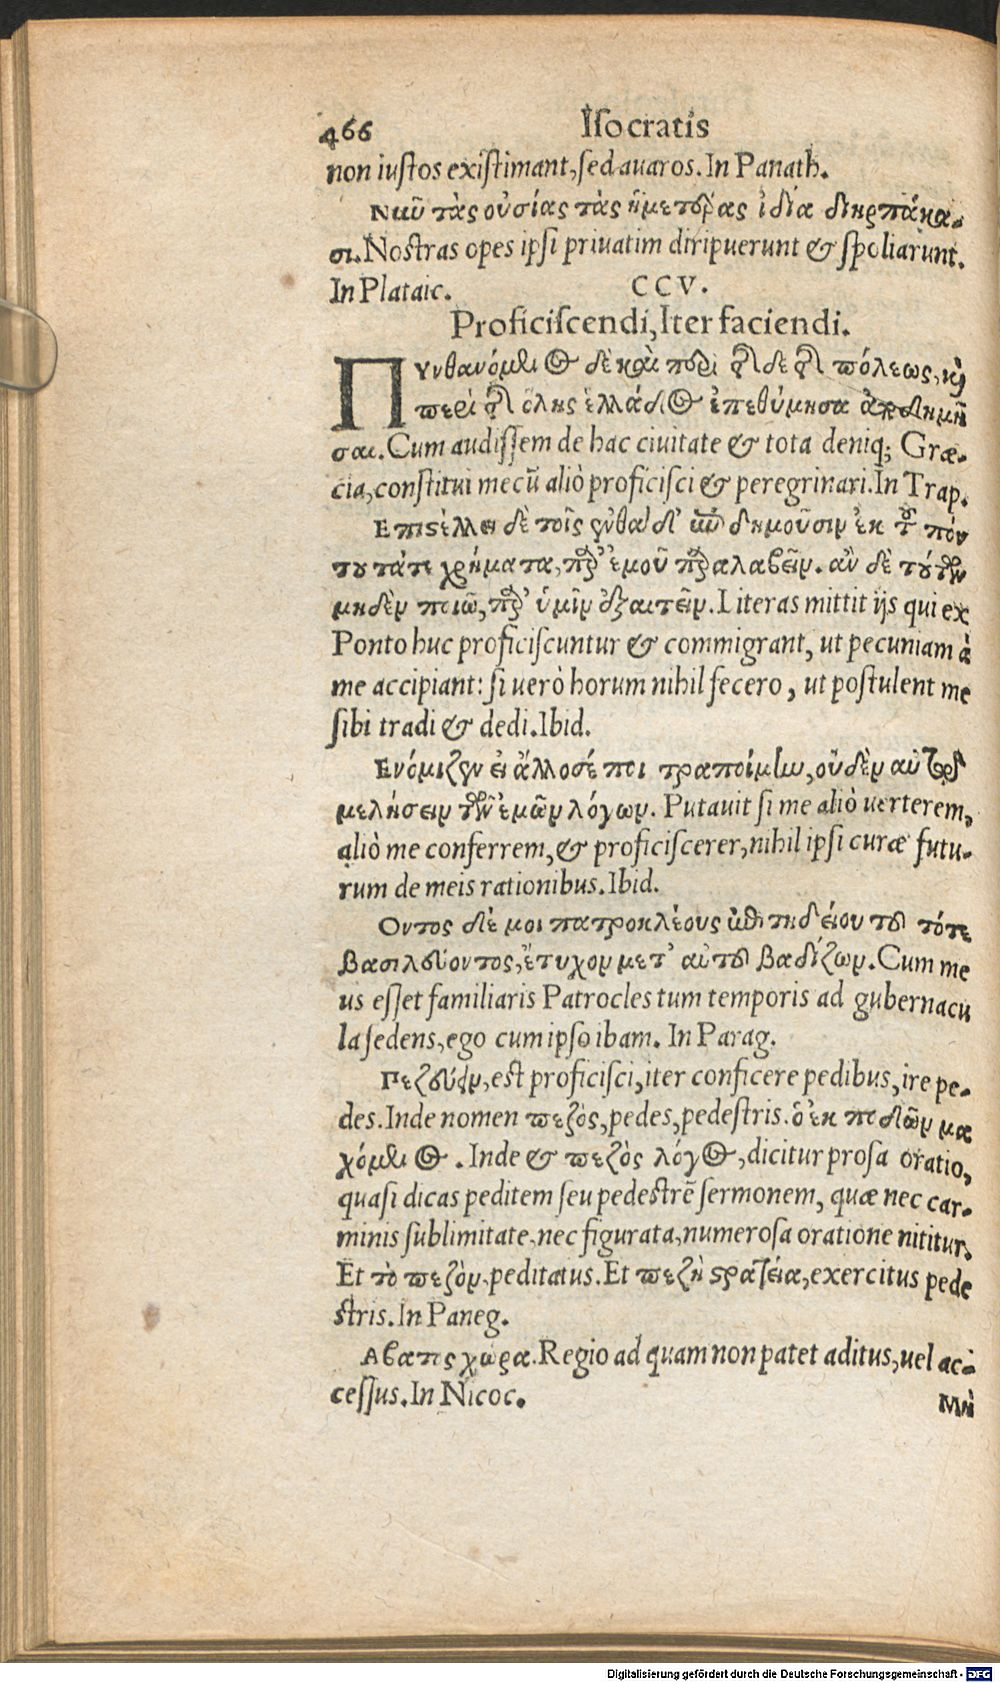 466 Isocratis
non iustos existimant, sed auaros. In Panath.
τὰς οὐσίας τὰς ἡμετέρας ἰδία διηρπάκα-
σι. Nostras opes ipsi priuatim diripuerunt & spoliarunt.
In Plataic. CCV.
Proficiscendi, Iter faciendi.
Πυνθανόμενος δὲ καὶ περὶ τῆσδε τῆς πόλεως, καὶ
περὶ τῆς ὅλης ἑλλάδος ἐπεθύμησα ἀποδημῆ
σαι. Cum audissem de hac ciuitate & tota deniq; Græ-
cia, constitui mecū aliò proficisci & peregrinari. In Trap.
Επιστέλλει δὲ τοῖς ἐνθάδ' ἐπιδημοῦσιν ἐκ τοῦ πόν
του τά τε χρήματα, παρ' ἐμοῦ παραλαβεῖν. ἂν δὲ τούτων
μηδὲν ποιῶ, παρ' ὑμῖν ἐξαιτεῖν. Literas mittit ijs qui ex
Ponto huc proficiscuntur & commigrant, ut pecuniam à
me accipiant: si uerò horum nihil fecero, ut postulent me
sibi tradi & dedi. Ibid.
Ενόμιζεν εἰ ἄλλοσέ ποι τραποίμην, οὐδὲν αὐτῷ
μελήσειν τῶν ἐμῶν λόγων. Putauit si me aliò uerterem,
aliò me conferrem, & proficiscerer, nihil ipsi curæ futu-
rum de meis rationibus. Ibid.
Οντος δέ μοι πατροκλέους ἐπιτηδείου τοῦ τότε
βασιλεύοντος, ἔτυχον μετ' αὐτοῦ βαδίζων. Cum me
us esset familiaris Patrocles tum temporis ad gubernacu
la sedens, ego cum ipso ibam. In Parag.
Πεζεύειν, est proficisci, iter conficere pedibus, ire pe-
des. Inde nomen πεζὸς, pedes, pedestris. ὁ ἐκ ποδῶν μα
χόμενος. Inde & πεζὸς λόγος, dicitur prosa oratio,
quasi dicas peditem seu pedestrē sermonem, quæ nec car-
minis sublimitate, nec figurata, numerosa oratione nititur.
Et τὸ πεζὸν, peditatus. Et πεζὴ στρατεία, exercitus pede
stris. In Paneg.
Αβατος χώρα. Regio ad quam non patet aditus, uel ac-
cessus. In Nicoc.
Μὴ
Digitalisierung gefördert durch die Deutsche Forschungsgemeinschaft - DFG